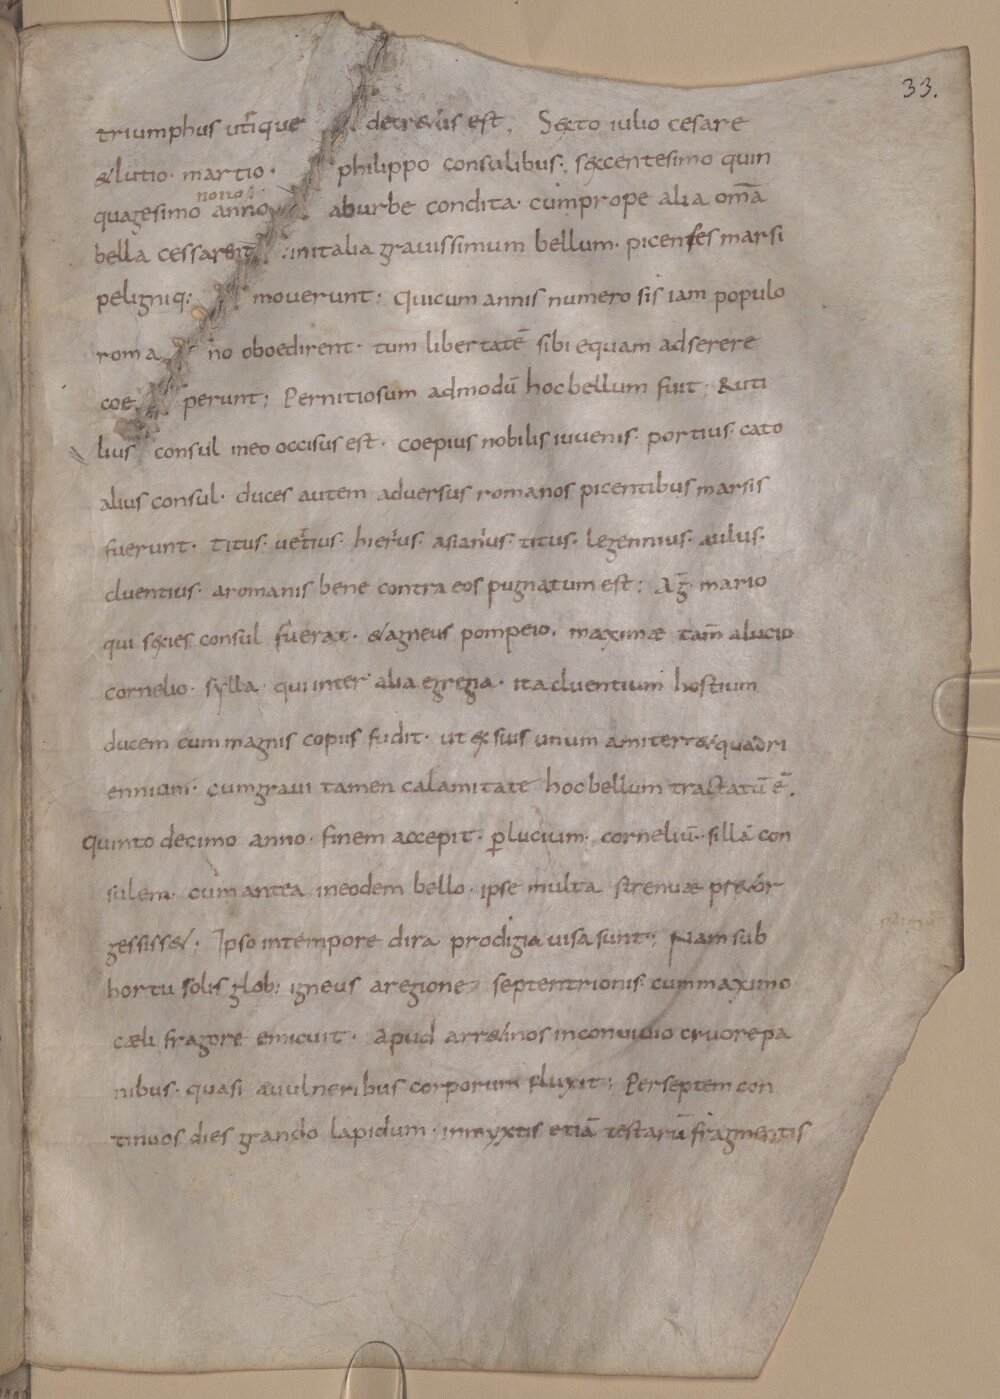 33.
triumphus utriq̄ue decretus est; Sexto iulio cesare
& lutio· martio· philippo consulibus·; sexcentesimo quin
nono
quagesimo anno ab urbe condita· cum prope alia om̄a
bella cessarent· in italia gravissimum bellum· picentes marsi
peligniq: moverunt: Qui cum annis numerosis iam populo
roma no oboedirent· tum libertatē sibi equam adserere
coe perunt; Pernitiosum admodū hoc bellum fuit; Ruti
lius consul in eo occisus est· coepius nobilis iuvenis· portius· cato
alius consul· duces autem adversus romanos picentibus marsis
fuerunt· titus· vettius· hierius· asianus· titus· legennius· aulus·
cluentius· a romanis bene contra eos pugnatum est; Ag̅· mario
qui sexies consul fuerat· & agneus pompeio· maximae tam̄ a lucio
cornelio· sylla· qui inter alia egregia· ita cluentium hostium
ducem cum magnis copiis fudit· ut ex suis unum amitter& quadri
ennium· cum gravi tamen calamitate hoc bellum tractatū ē·
quinto decimo anno· finem accepit· p̱ lucium· corneliū· sillā con
sulem· cum antea in eodem bello· ipse multa strenuae pr&or
gessiss&; Ipso in tempore dira prodigia visa sunt; Nam sub
hortu solis glob: igneus a regione septentrionis· cum maximo
cæli fragore emicuit· Apud arr&inos in convivio cruore pa
nibus· quasi a vulneribus corporum fluxit; Per septem con
tinuos dies grando lapidum· inmyxtis etiā testarū fragmentis